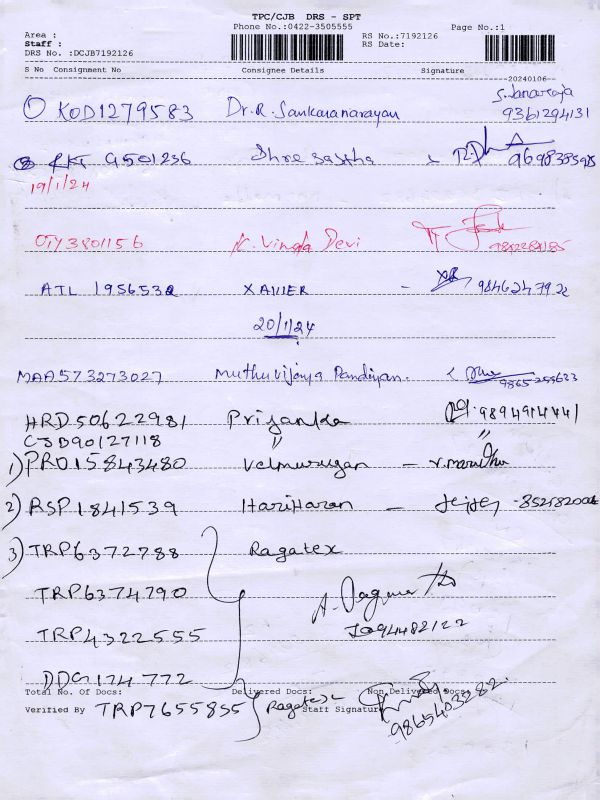 TPC/CJB DRS - SPT
Phone No.:0422-3505555
Area :
Staff :
DRS No. :DCJB7192126
RS No.:7192126
RS Date:
Page No.:1
S No Consignment No Consignee Details Signature
20240106
1 KOD1279583 Dr.R. Sankaranarayan 9361294131
2 RKT G501236 Shree Sastha
19/1/24
OTY3801156 N. Vinda Devi
ATL 1956532 XAVIER - 9846247922
20/1/24
MAA573273027 Muthuvijaya Pandiyan.
HRD50622981 Priyanka
CJB90127118 "
1) PRO15843480 Velmurugan -
2) RSP1841539 Hariharan -
3) TRP6372788 Ragatex
TRP6374790
TRP4322555
DDG174772
Total No. Of Docs: Delivered Docs: Non Delivered Docs:
Verified By TRP7655855 Ragatex Staff Signature
9865403282.